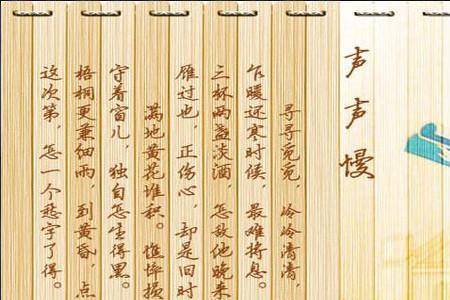 声声慢
寻寻觅觅，冷冷清清，
乍暖还寒时候，最难将息。
三杯两盏淡酒，怎敌他晚来
雁过也，正伤心，却是旧时
满地黄花堆积。憔悴损
守着窗儿，独自怎生得黑。
梧桐更兼细雨，到黄昏，点
这次第，怎一个愁字了得。